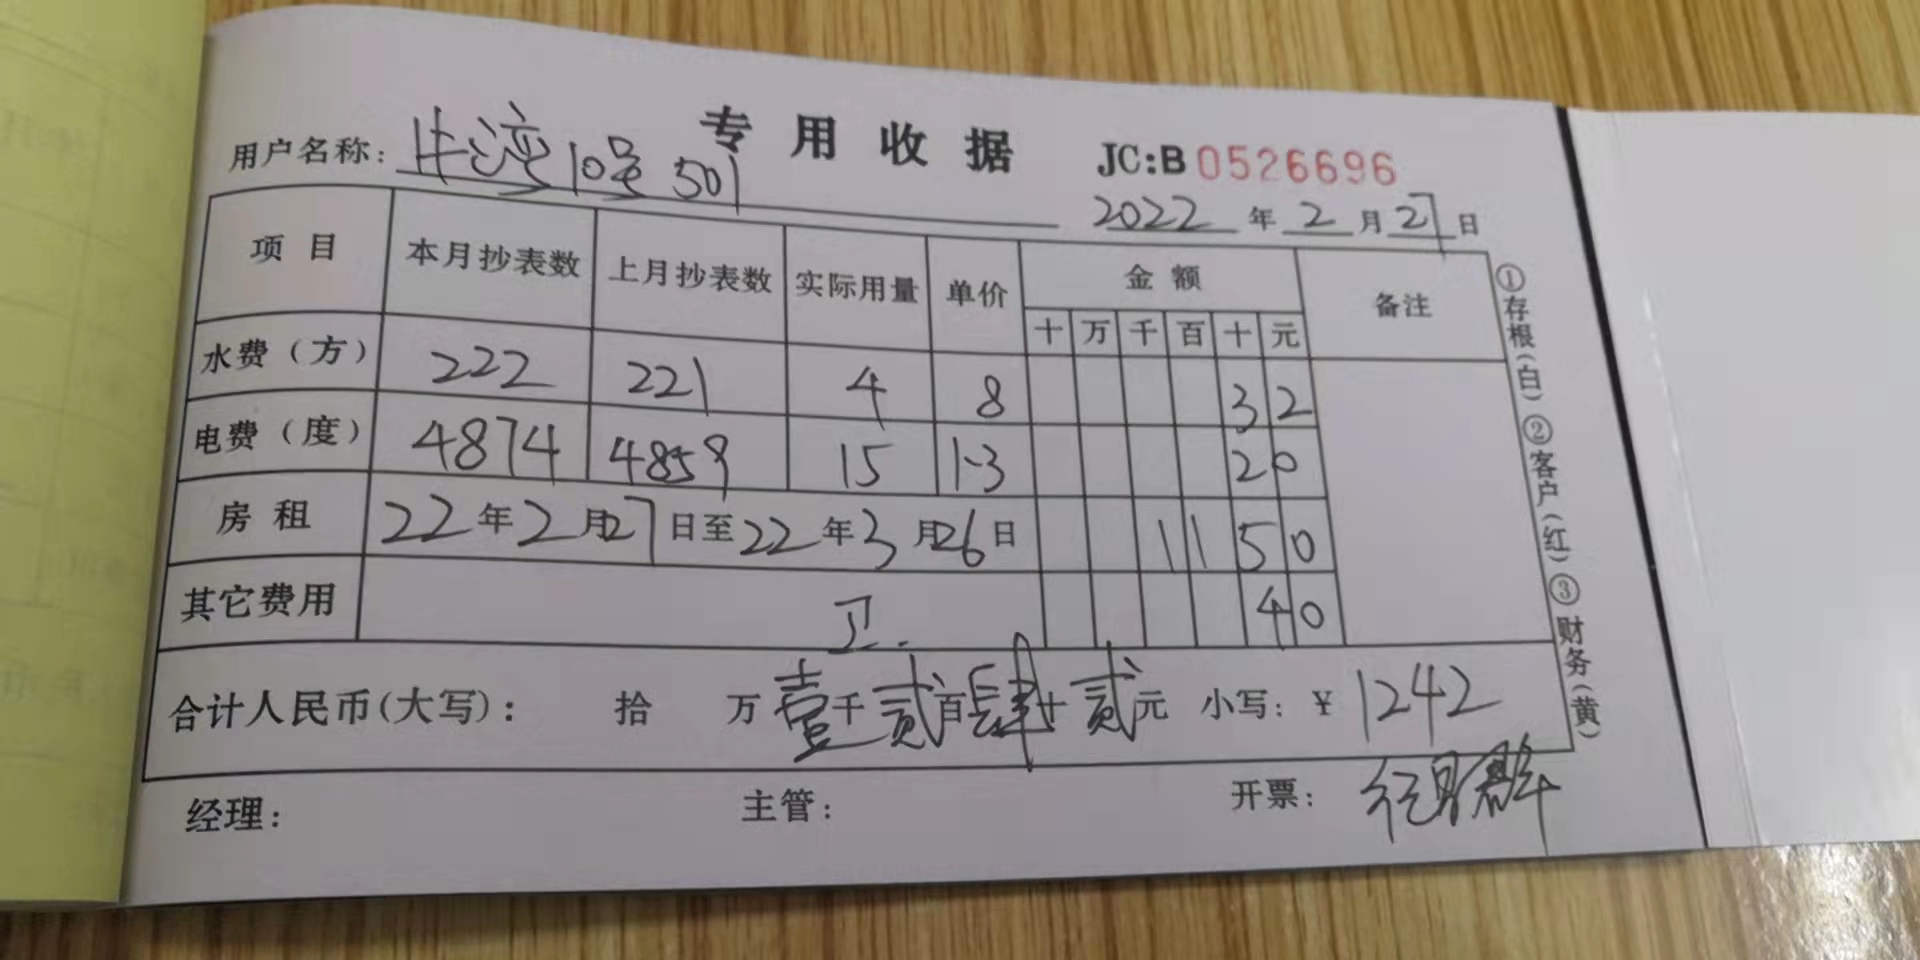 专用收据
用户名称: 上湾10号501 JC:B 0526696
2022年2月27日
项目 本月抄表数 上月抄表数 实际用量 单价 金额 备注
十 万 千 百 十 元
水费（方） 222 221 4 8 3 2
电费（度） 4874 4859 15 1.3 2 0
房租 22年2月27日至22年3月26日 1 1 5 0
其它费用 卫. 4 0
合计人民币(大写): 拾 万壹千贰百肆十贰元 小写: ¥ 1242
经理: 主管: 开票:
①存根(白) ②客户(红) ③财务(黄)